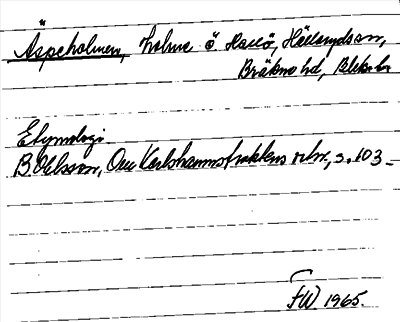 Äspeholmen, holme ö Harö, Hällaryds sn,
Bräkne hd, Blek. län
Etymologi
B Ohlsson, Om Karlshamnstraktens ortn., s. 103 –
FW. 1965.